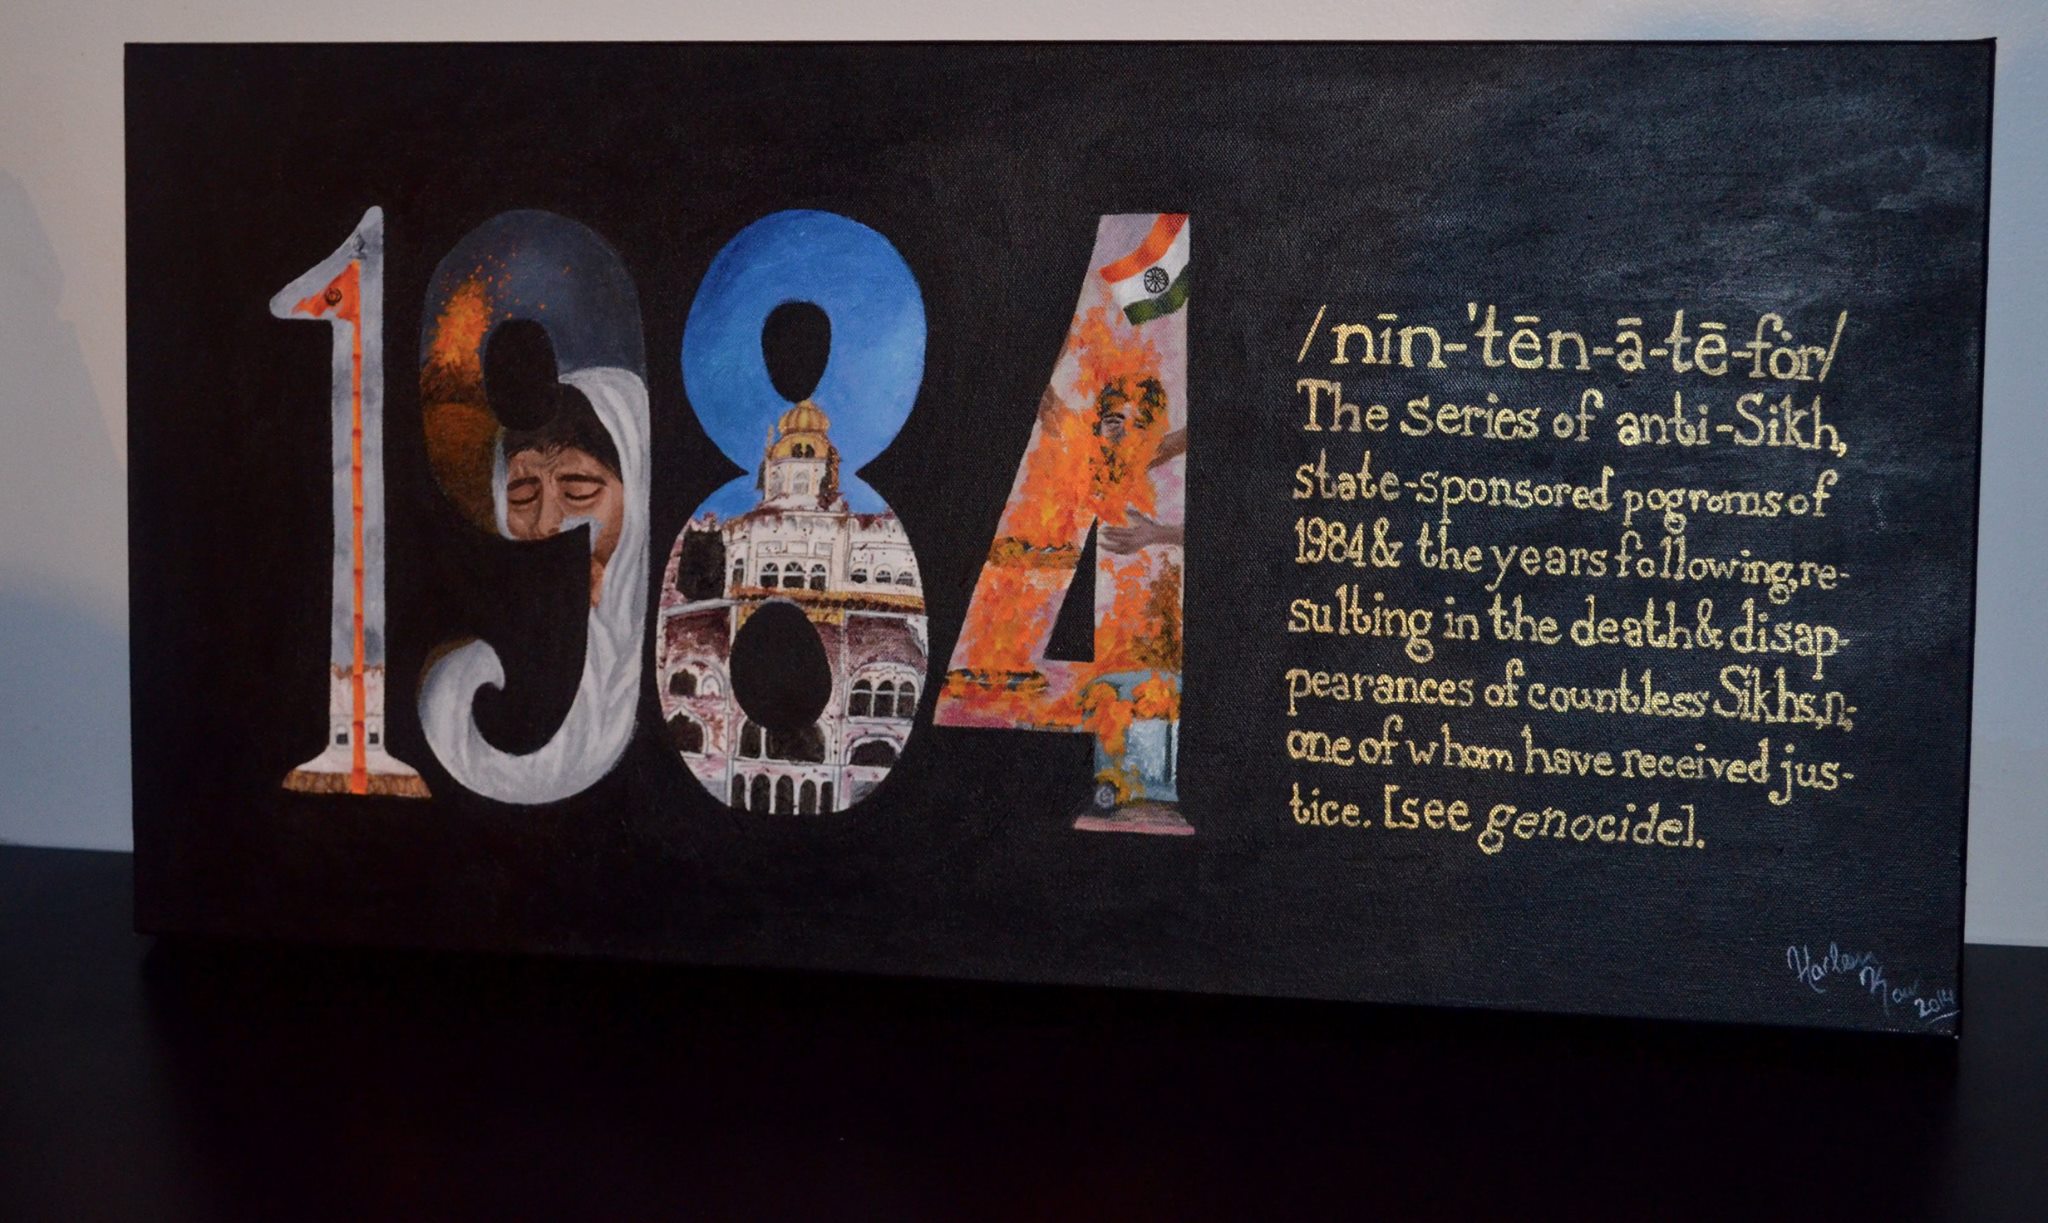 1984
/nīn-'tēn-ā-tē-fȯr/
The series of anti-Sikh,
state-sponsored pogroms of
1984 & the years following, re-
sulting in the death & disap-
pearances of countless Sikhs, n-
one of whom have received jus-
tice. [see genocide].
Harleen
Kaur
2014